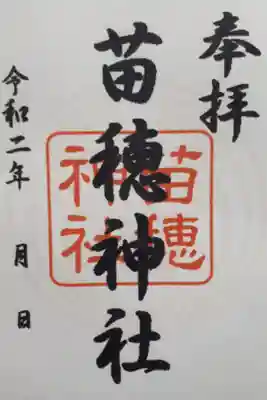 奉拝
苗穂神社
苗穂
神社
令和二年 月 日